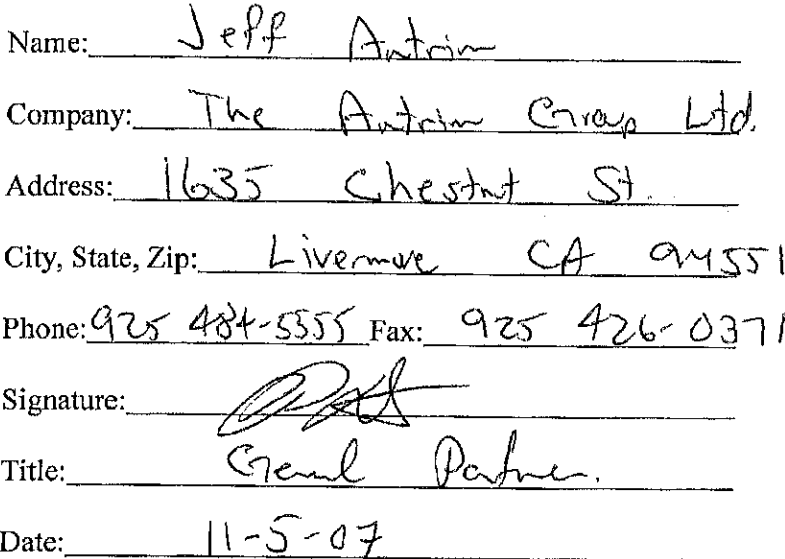 Name: Jeff Antrim
Company: The Antrim Group Ltd.
Address: 1635 Chestnut St.
City, State, Zip: Livermore CA 94551
Phone: 925 484-5555 Fax: 925 426-0371
Signature:
Title: General Partner.
Date: 11-5-07